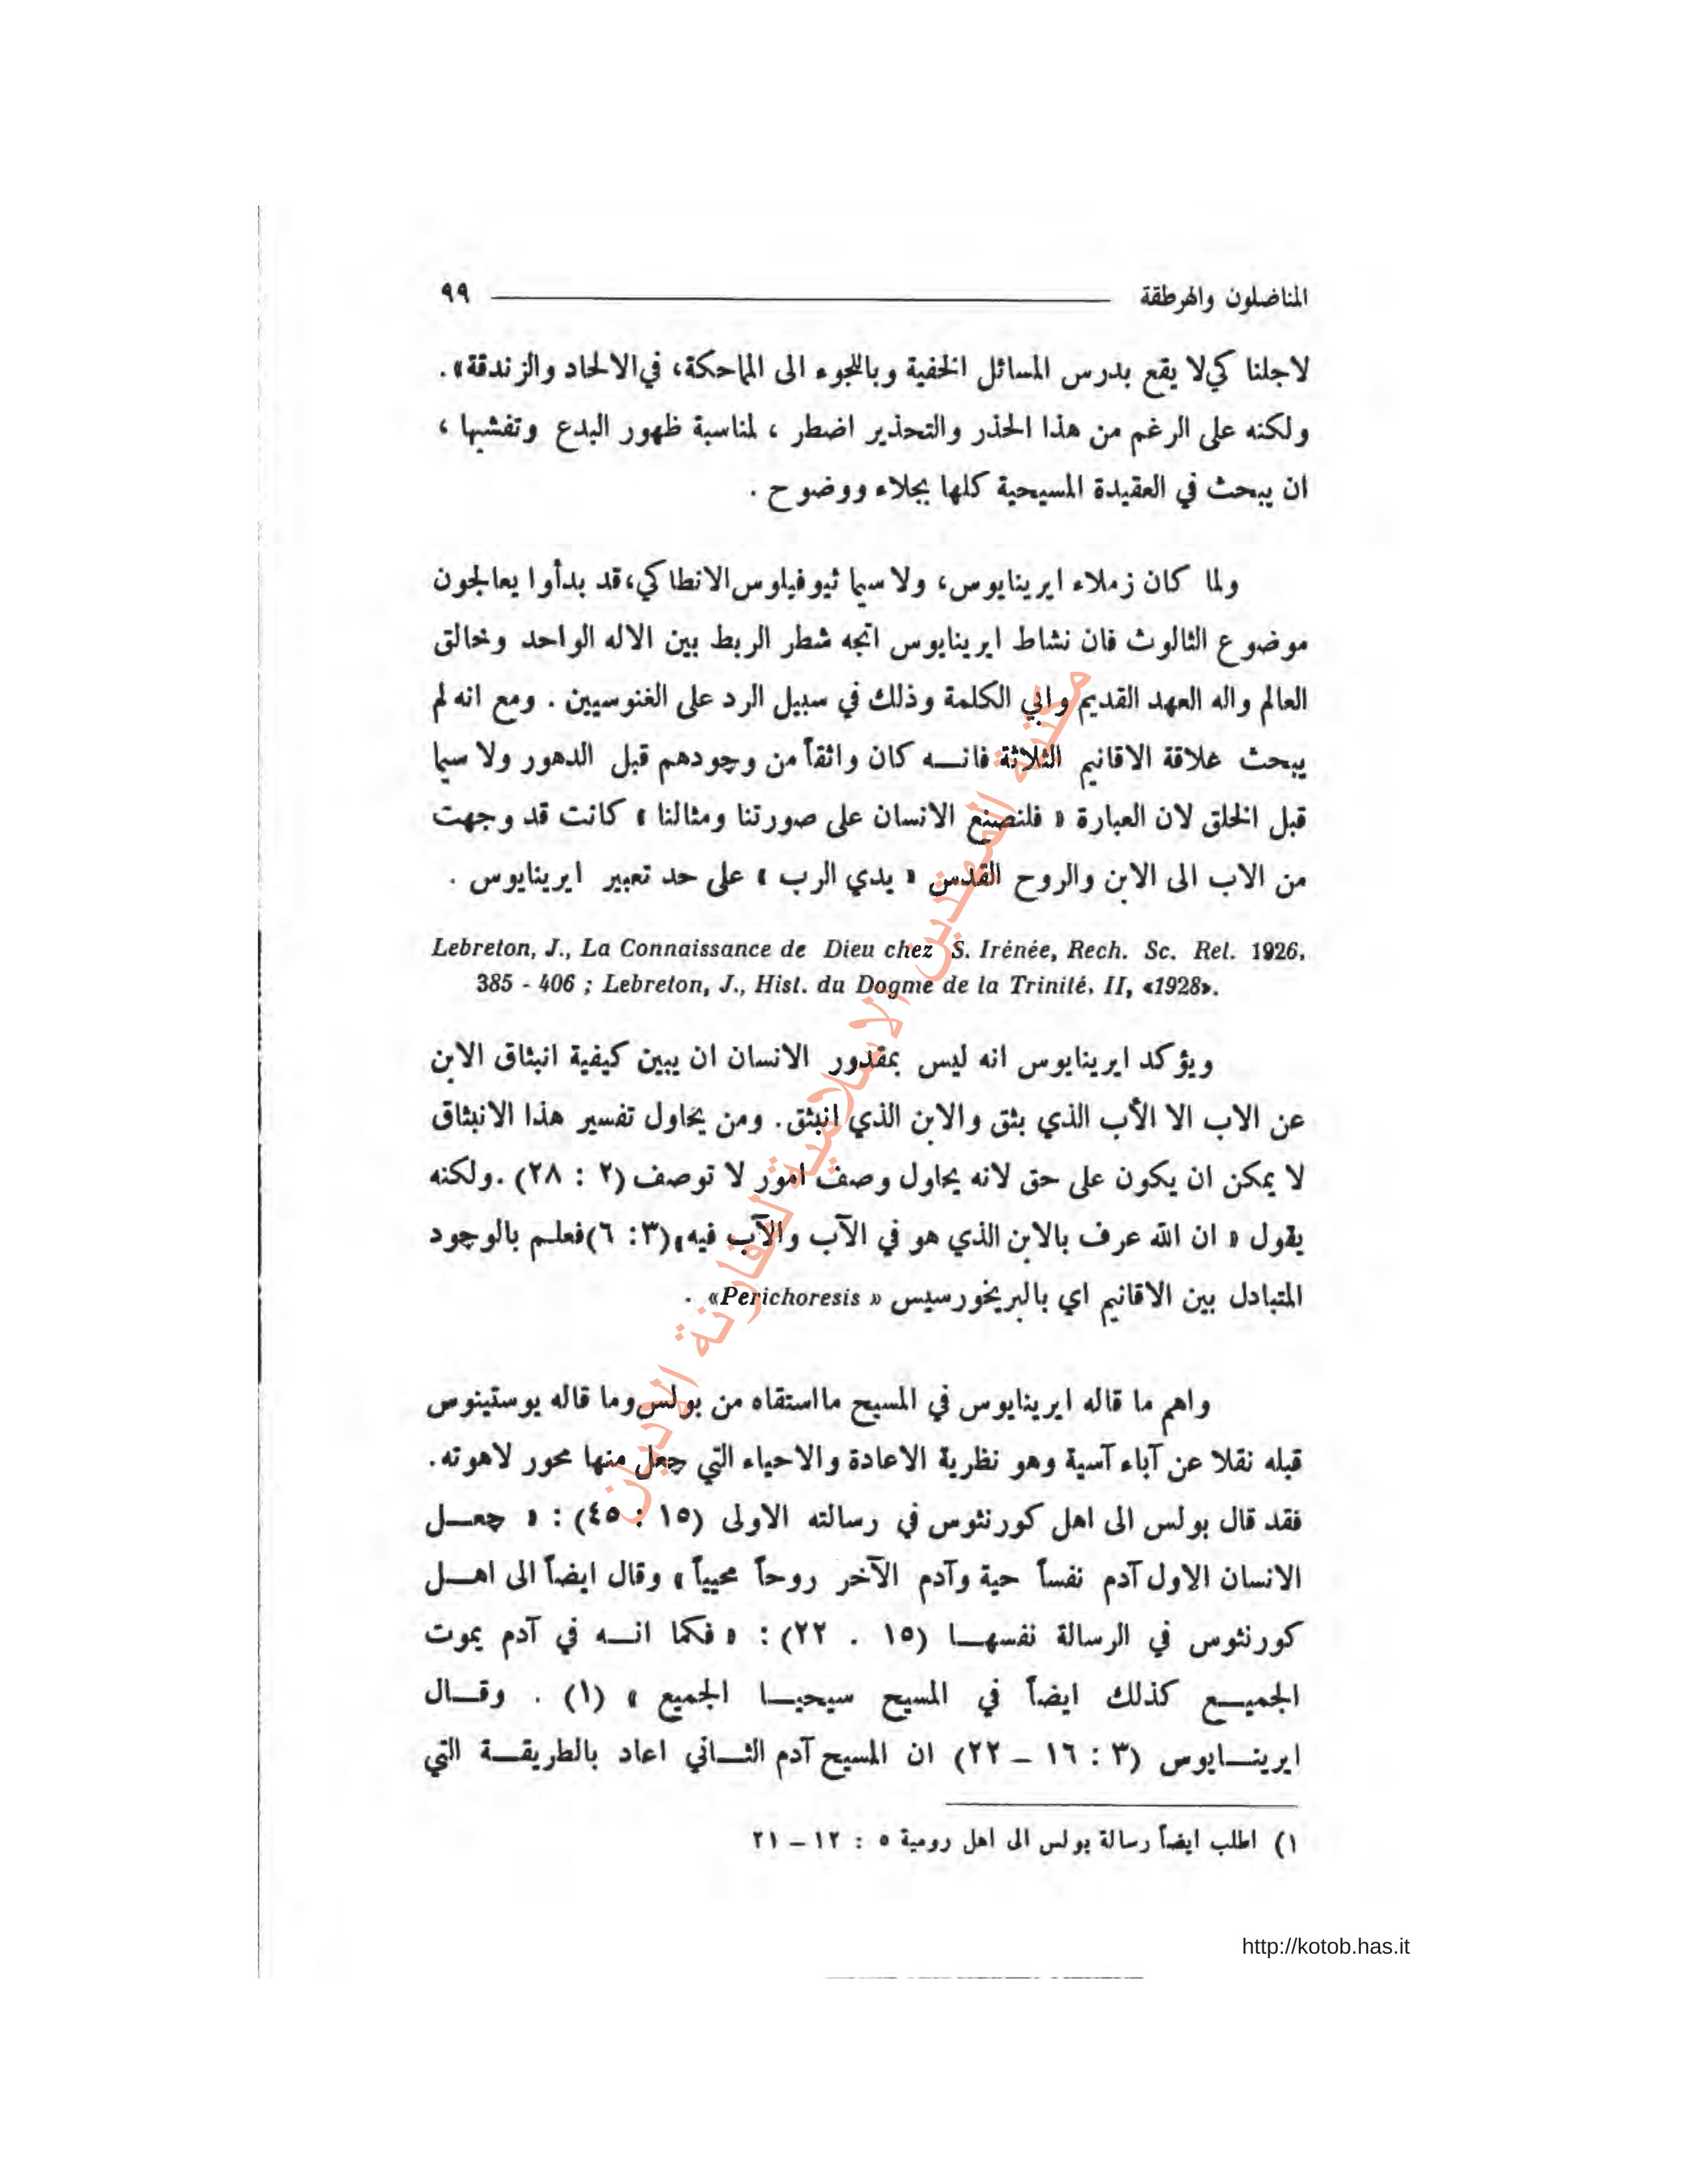 المناضلون والهرطقة ٩٩
لاجلنا كي لا يقع بدرس المسائل الخفية وباللجوء الى المماحكة، في الالحاد والزندقة» .
ولكنه على الرغم من هذا الحذر والتحذير اضطر ، لمناسبة ظهور البدع وتفشيها ،
ان يبحث في العقيدة المسيحية كلها بجلاء ووضوح .
ولما كان زملاء ايريناايوس، ولا سيما ثيوفيلوس الانطاكي، قد بدأوا يعالجون
موضوع الثالوث فان نشاط ايرينايوس اتجه شطر الربط بين الاله الواحد وخالق
العالم واله العهد القديم وابي الكلمة وذلك في سبيل الرد على الغنوسيين . ومع انه لم
يبحث علاقة الاقانيم الثلاثة فانـه كان واثقاً من وجودهم قبل الدهور ولا سيما
قبل الخلق لان العبارة « فلنصنع الانسان على صورتنا ومثالنا » كانت قد وجهت
من الاب الى الابن والروح القدس « يدي الرب » على حد تعبير ايرينايوس .
Lebreton, J., La Connaissance de Dieu chez S. Irénée, Rech. Sc. Rel. 1926,
385 - 406 ; Lebreton, J., Hist. du Dogme de la Trinité, II, «1928».
ويؤكد ايرينايوس انه ليس بمقدور الانسان ان يبين كيفية انبثاق الابن
عن الاب الا الأب الذي بثق والابن الذي انبثق. ومن يحاول تفسير هذا الانبثاق
لا يمكن ان يكون على حق لانه يحاول وصف امور لا توصف (٢ : ٢٨) .ولكنه
يقول « ان الله عرف بالابن الذي هو في الآب والآب فيه»(٣: ٦)فعلم بالوجود
المتبادل بين الاقانيم اي بالبريخورسيس « Perichoresis» .
واهم ما قاله ايرينايوس في المسيح ما استقاه من بولس وما قاله يوستينوس
قبله نقلا عن آباء آسية وهو نظرية الاعادة والاحياء التي جعل منها محور لاهوته.
فقد قال بولس الى اهل كورنثوس في رسالته الاولى (١٥ : ٤٥) : « جعـل
الانسان الاول آدم نفساً حية وآدم الآخر روحاً محيياً » وقال ايضاً الى اهـل
كورنثوس في الرسالة نفسهـا (١٥ . ٢٢) : « فكما انـه في آدم يموت
الجميـع كذلك ايضاً في المسيح سيحيـا الجميع » (١) . وقـال
ايرينـايوس (٣ : ١٦ – ٢٢) ان المسيح آدم الثـاني اعاد بالطريقـة التي
١) اطلب ايضاً رسالة بولس الى اهل رومية ٥ : ١٢ – ٢١
مكتبة المهتدين الاسلامية لمقارنة الاديان
http://kotob.has.it